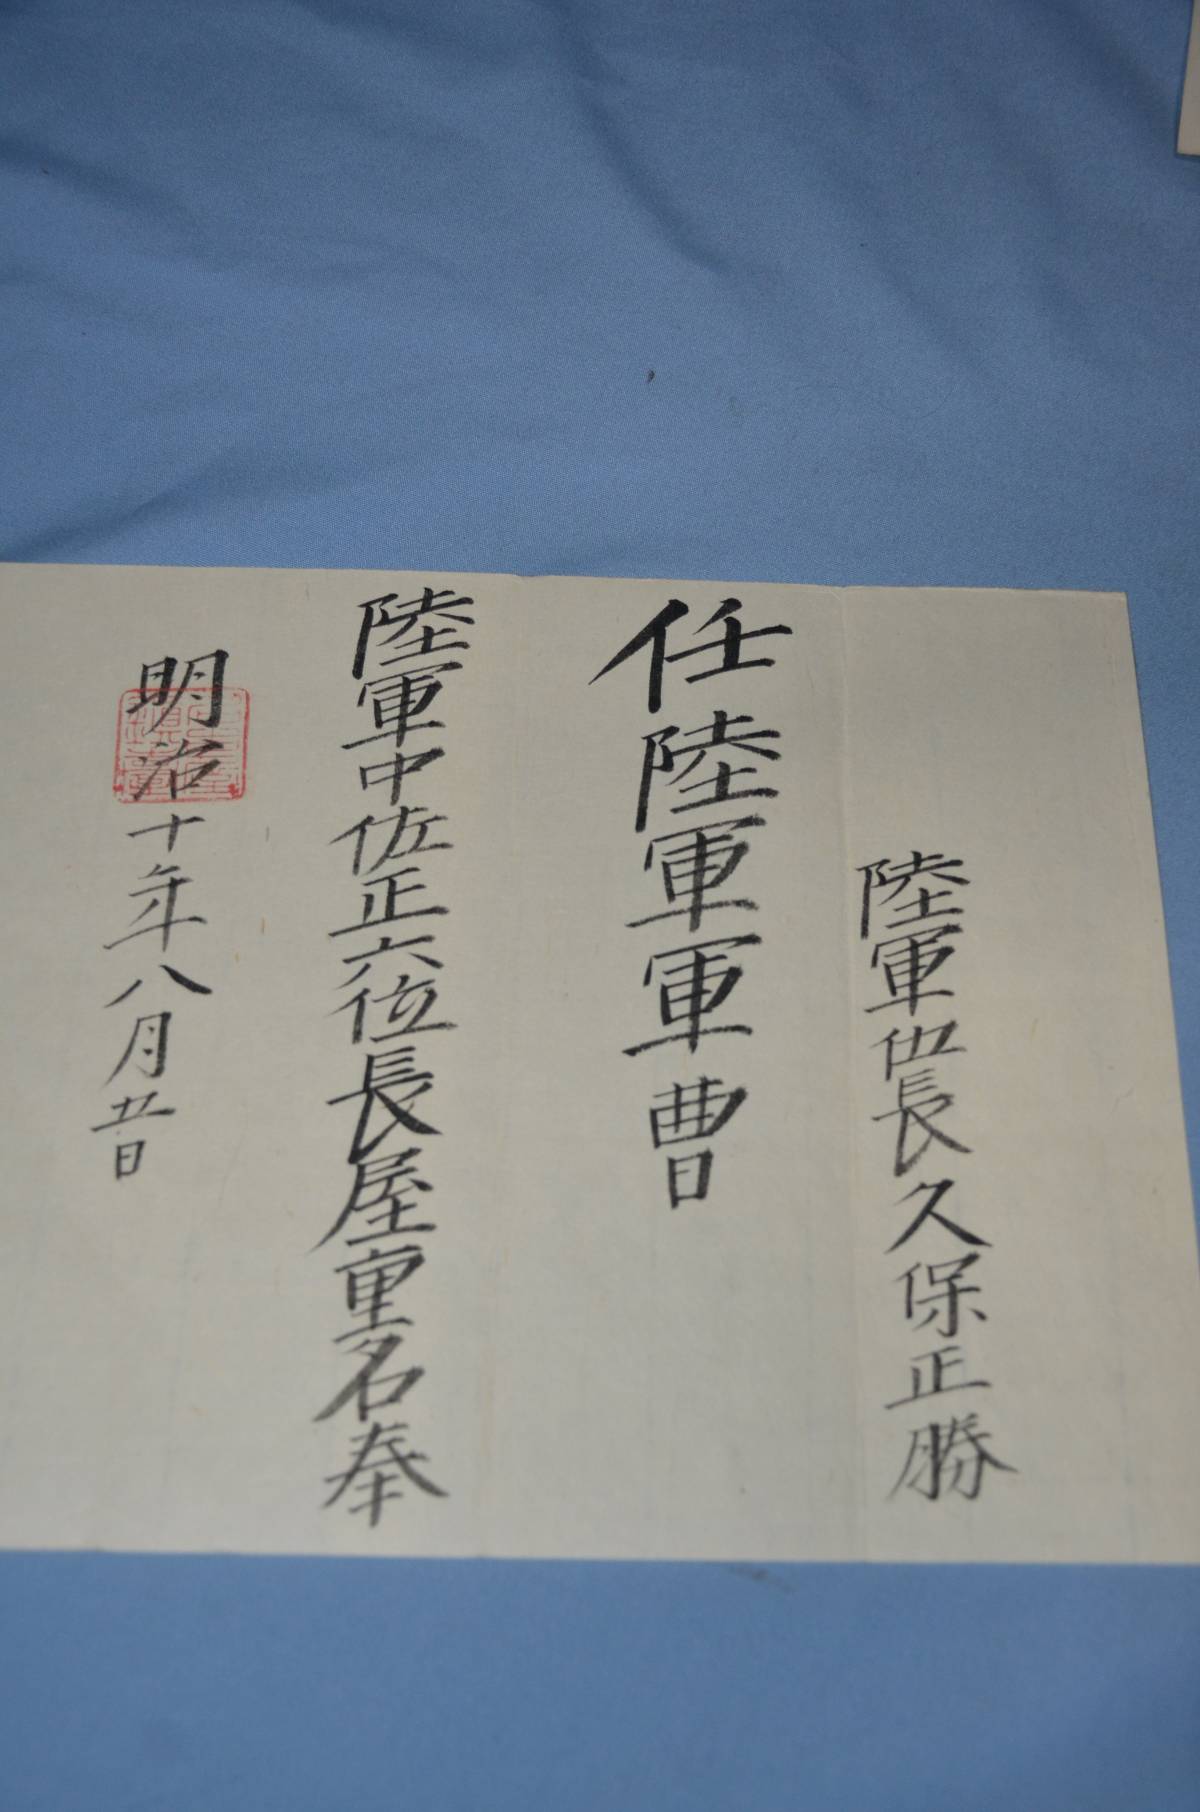 陸軍伍長久保正勝
任陸軍軍曹
陸軍中佐正六位長屋重名奉
明治十年八月廿一日